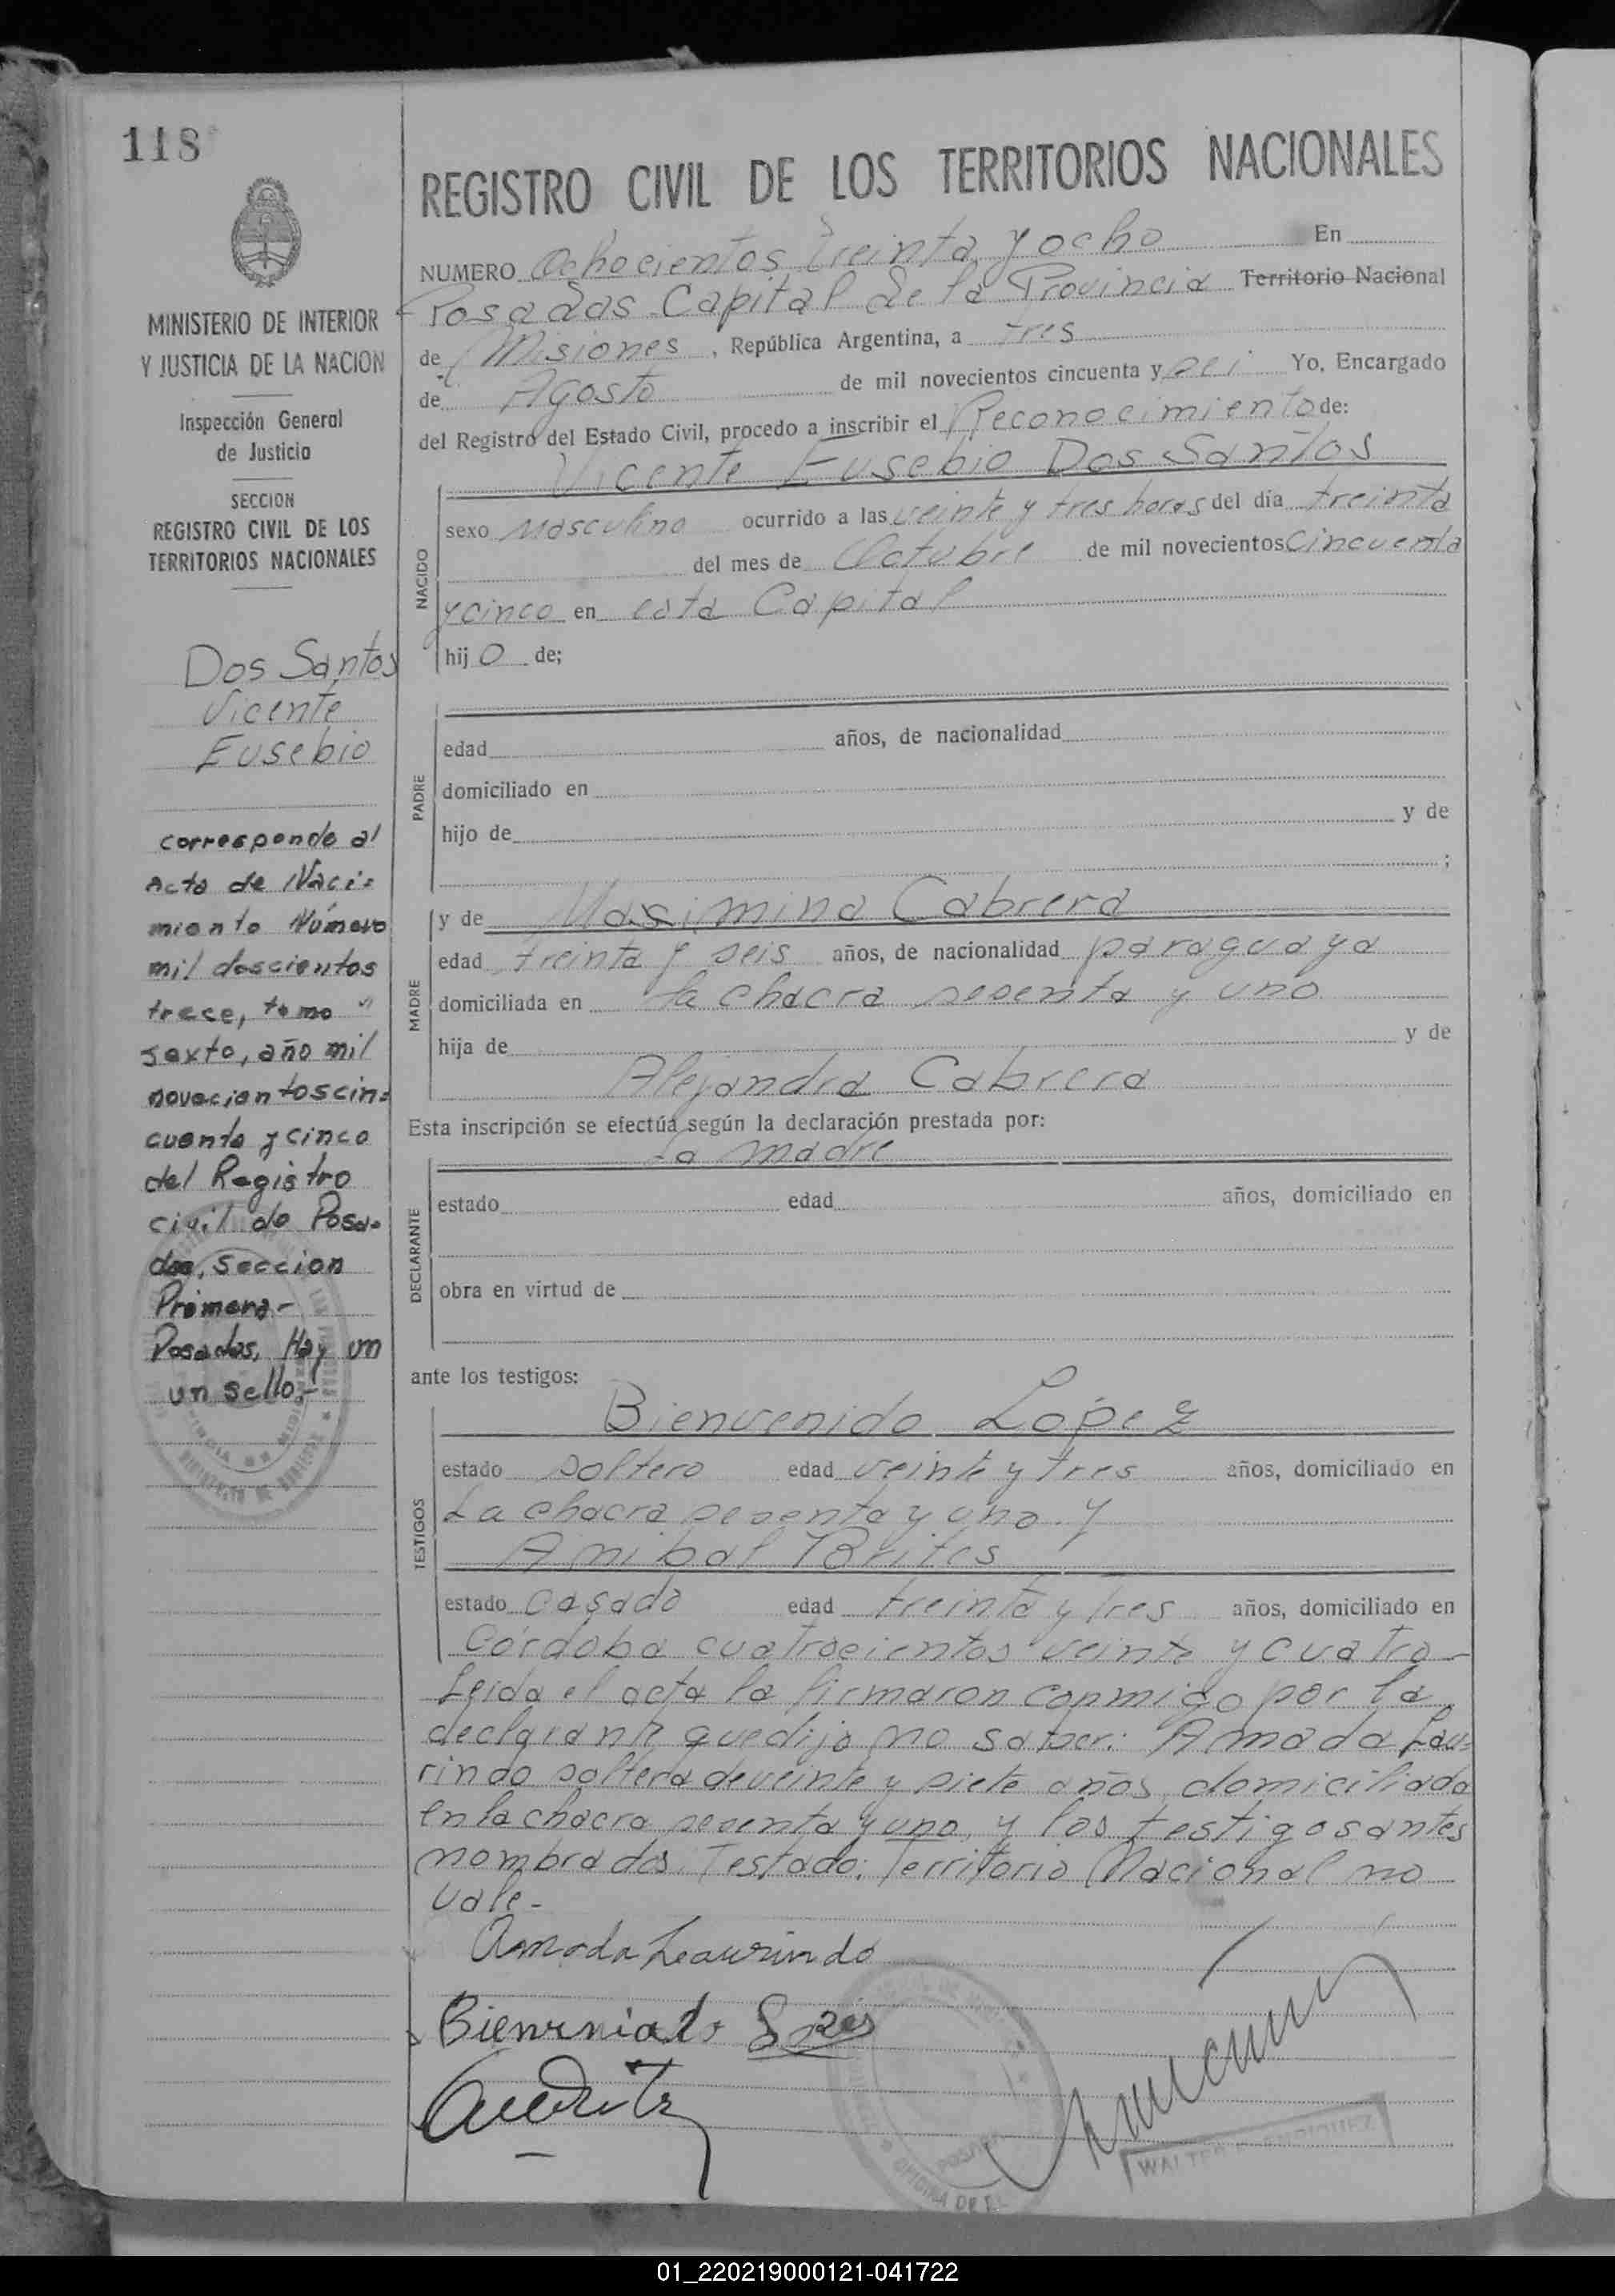 118
REGISTRO CIVIL DE LOS TERRITORIOS NACIONALES
NUMERO Ochocientos treinta y ocho En
Posadas Capital de la Provincia Territorio Nacional
de Misiones, República Argentina, a tres
de Agosto de mil novecientos cincuenta y sei Yo, Encargado
del Registro del Estado Civil, procedo a inscribir el Reconocimiento de:
Vicente Eusebio Dos Santos
NACIDO
sexo Masculino ocurrido a las veinte y tres horas del día treinta
del mes de Octubre de mil novecientos cincuenta
y cinco en esta Capital
hijo de;
PADRE
edad años, de nacionalidad
domiciliado en
hijo de y de
;
MADRE
y de Maximina Cabrera
edad treinta y seis años, de nacionalidad paraguaya
domiciliada en la chacra sesenta y uno
hija de y de
Alejandra Cabrera
Esta inscripción se efectúa según la declaración prestada por:
La madre
DECLARANTE
estado edad años, domiciliado en
obra en virtud de
ante los testigos:
TESTIGOS
Bienvenido López
estado soltero edad veinte y tres años, domiciliado en
La chacra sesenta y uno. y
Anibal Brites
estado casado edad treinta y tres años, domiciliado en
Córdoba cuatrocientos veinte y cuatro-
Leida el acta la firmaron conmigo por la
declarante que dijo no saber: Amada Lau=
rindo soltera de veinte y siete años, domiciliada
en la chacra sesenta y uno, y los testigos antes
nombrados. Testado: Territorio Nacional no
vale-
Amada Leaurindo
Bienvenido
MINISTERIO DE INTERIOR
Y JUSTICIA DE LA NACION
Inspección General
de Justicia
SECCION
REGISTRO CIVIL DE LOS
TERRITORIOS NACIONALES
Dos Santos
Vicente
Eusebio
corresponde al
Acta de Naci=
miento Número
mil doscientos
trece, tomo
sexto, año mil
novecientos cin=
cuenta y cinco
del Registro
civil de Posa-
das, Seccion
Primera-
Posadas, Hay un
un sello.-
OFICINA DE
WALTER
01_220219000121-041722